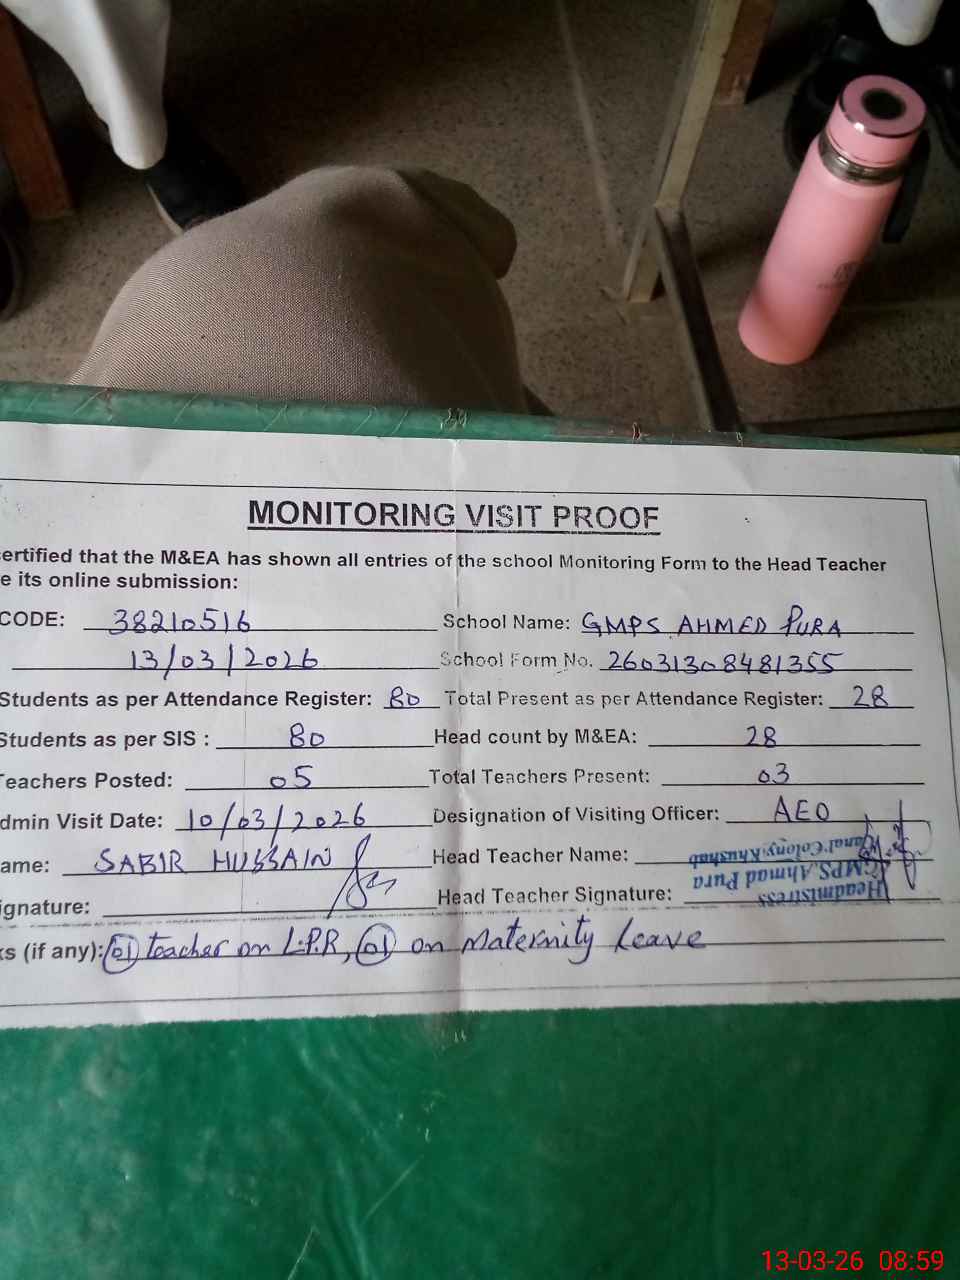 MONITORING VISIT PROOF
ertified that the M&EA has shown all entries of the school Monitoring Form to the Head Teacher
e its online submission:
CODE: 38210516 School Name: GMPS AHMED PURA
13/03/2026 School Form No. 26031308481355
Students as per Attendance Register: 80 Total Present as per Attendance Register: 28
Students as per SIS : 80 Head count by M&EA: 28
eachers Posted: 05 Total Teachers Present: 03
dmin Visit Date: 10/03/2026 Designation of Visiting Officer: AEO
ame: SABIR HUSSAIN Head Teacher Name:
ignature: Head Teacher Signature:
Headmistress
GMPS, Ahmad Pura
Canal Colony, Khushab
ks (if any): 01 teacher on L.P.R, 01 on Maternity Leave
13-03-26 08:59